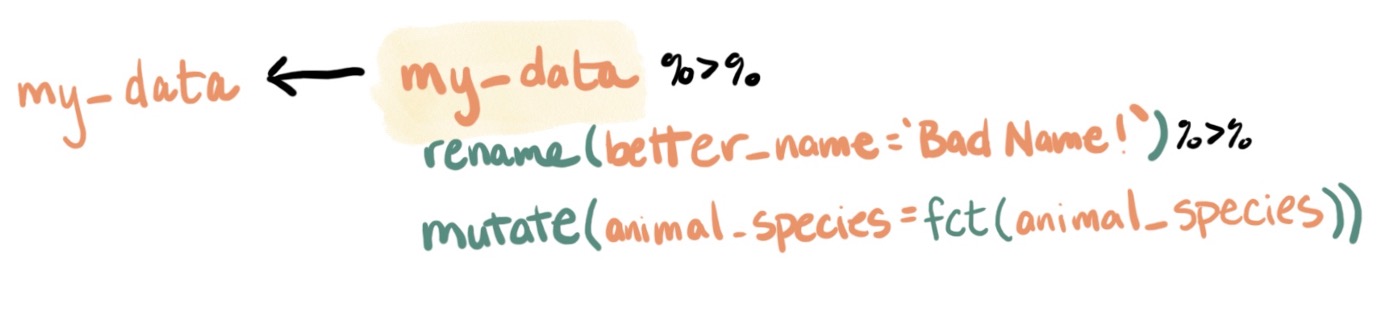 my_data ← my_data %>%
rename(better_name=`Bad Name!`) %>%
mutate(animal_species=fct(animal_species))